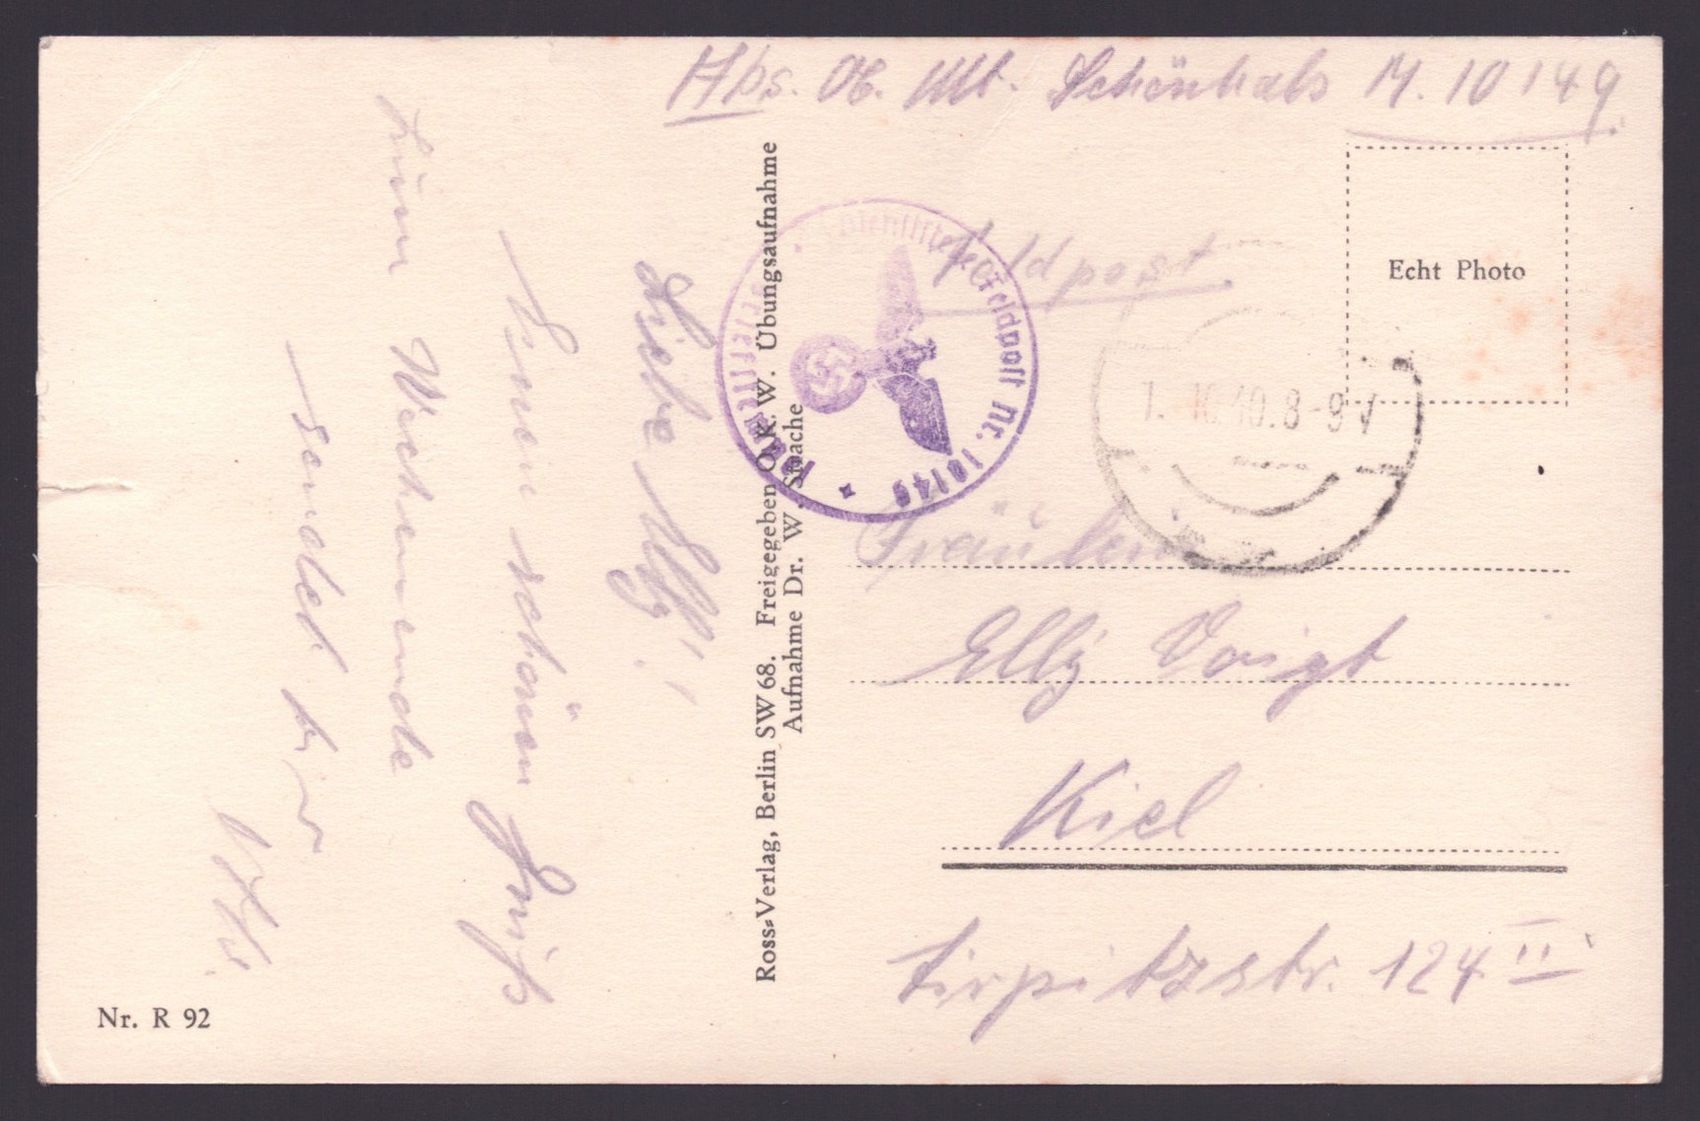 Abs. Ob. Mt. Schönhals M. 10149
Feldpost
Echt Photo
Dienststelle Feldpost Nr. 10149
Briefstempel
1. 10.40. 8-9 V
Fräulein
Elly Voigt
Kiel
Tirpitzstr. 124 II
Ross-Verlag, Berlin SW 68. Freigegeben O. K. W. Übungsaufnahme
Aufnahme Dr. W. Strache
Liebe Elly!
Einen schönen Gruß
zum Wochenende
sendet dir
Nr. R 92